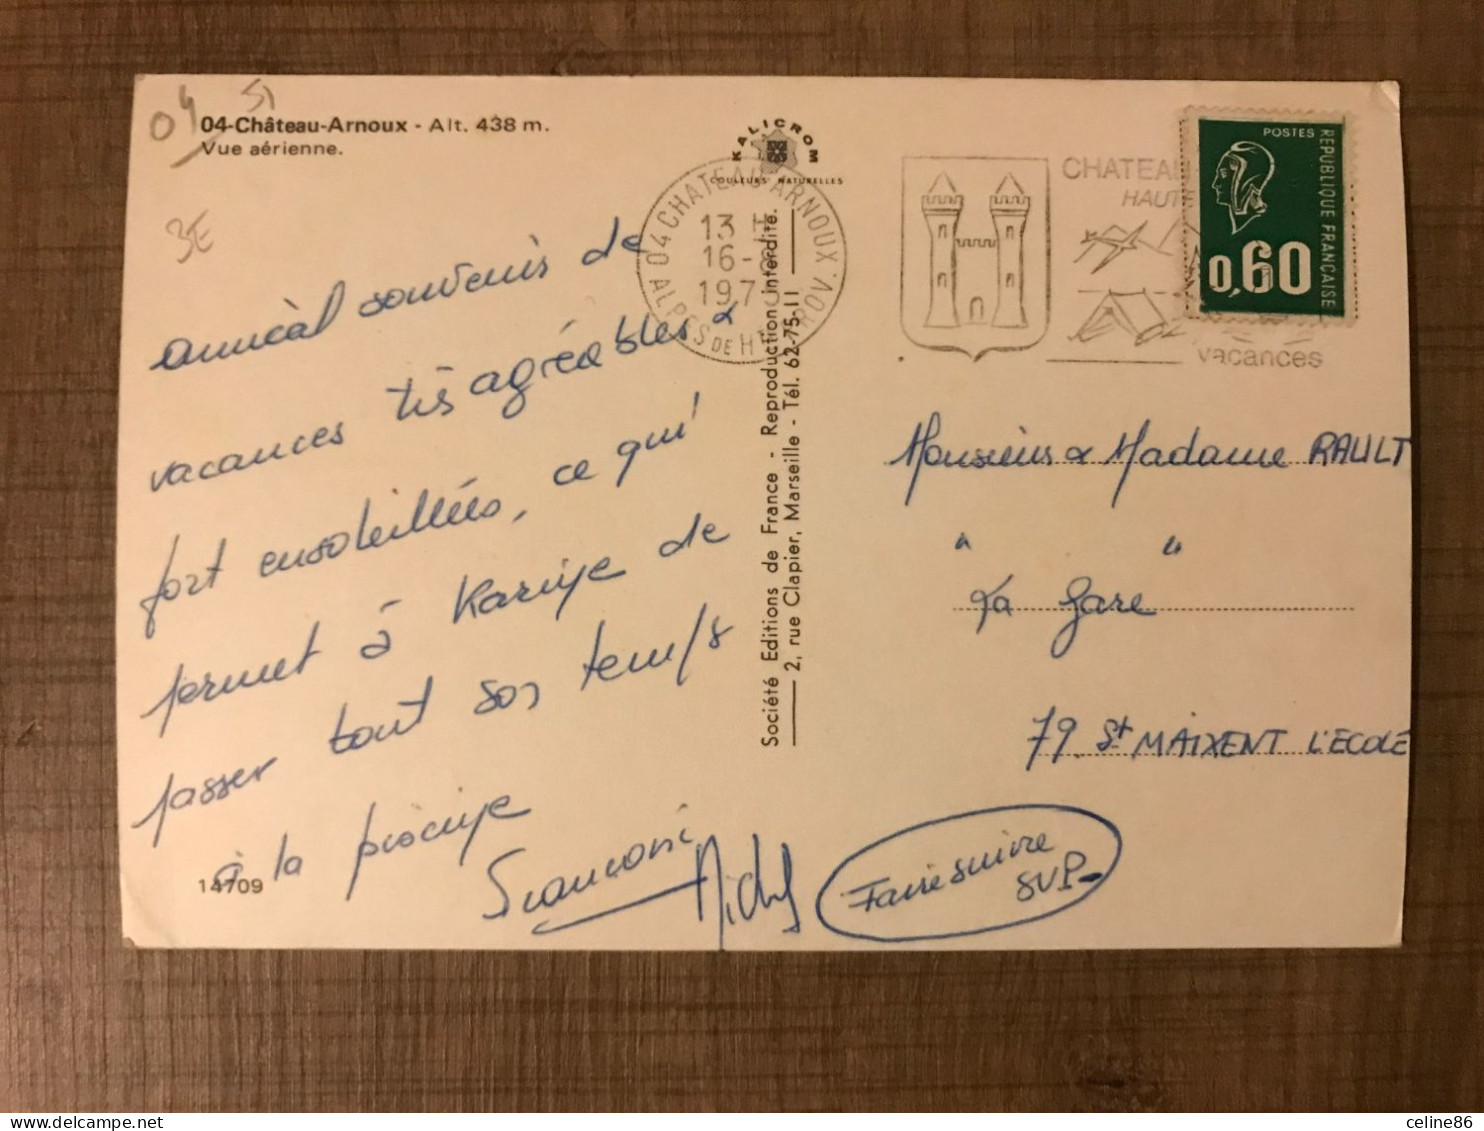 04
51
04-Château-Arnoux - Alt. 438 m.
Vue aérienne.
3E
KALICROM
COULEURS NATURELLES
04 CHATEAU-ARNOUX
13 H
16-8
197
ALPES DE HTE PROV.
CHATEAU
HAUTE
vacances
POSTES
REPUBLIQUE FRANÇAISE
0,60
amical souvenir de
vacances très agréables &
fort ensoleillées, ce qui
permet à Karine de
passer tout son temps
à la piscine
14709
Michel
Société Editions de France - Reproduction interdite.
2, rue Clapier, Marseille - Tél. 62-75-11
Monsieurs & Madame RAULT
" "
La Gare
79 St MAIXENT L'ECOLE
Faire suivre
SVP-
delcampe.net
celine86